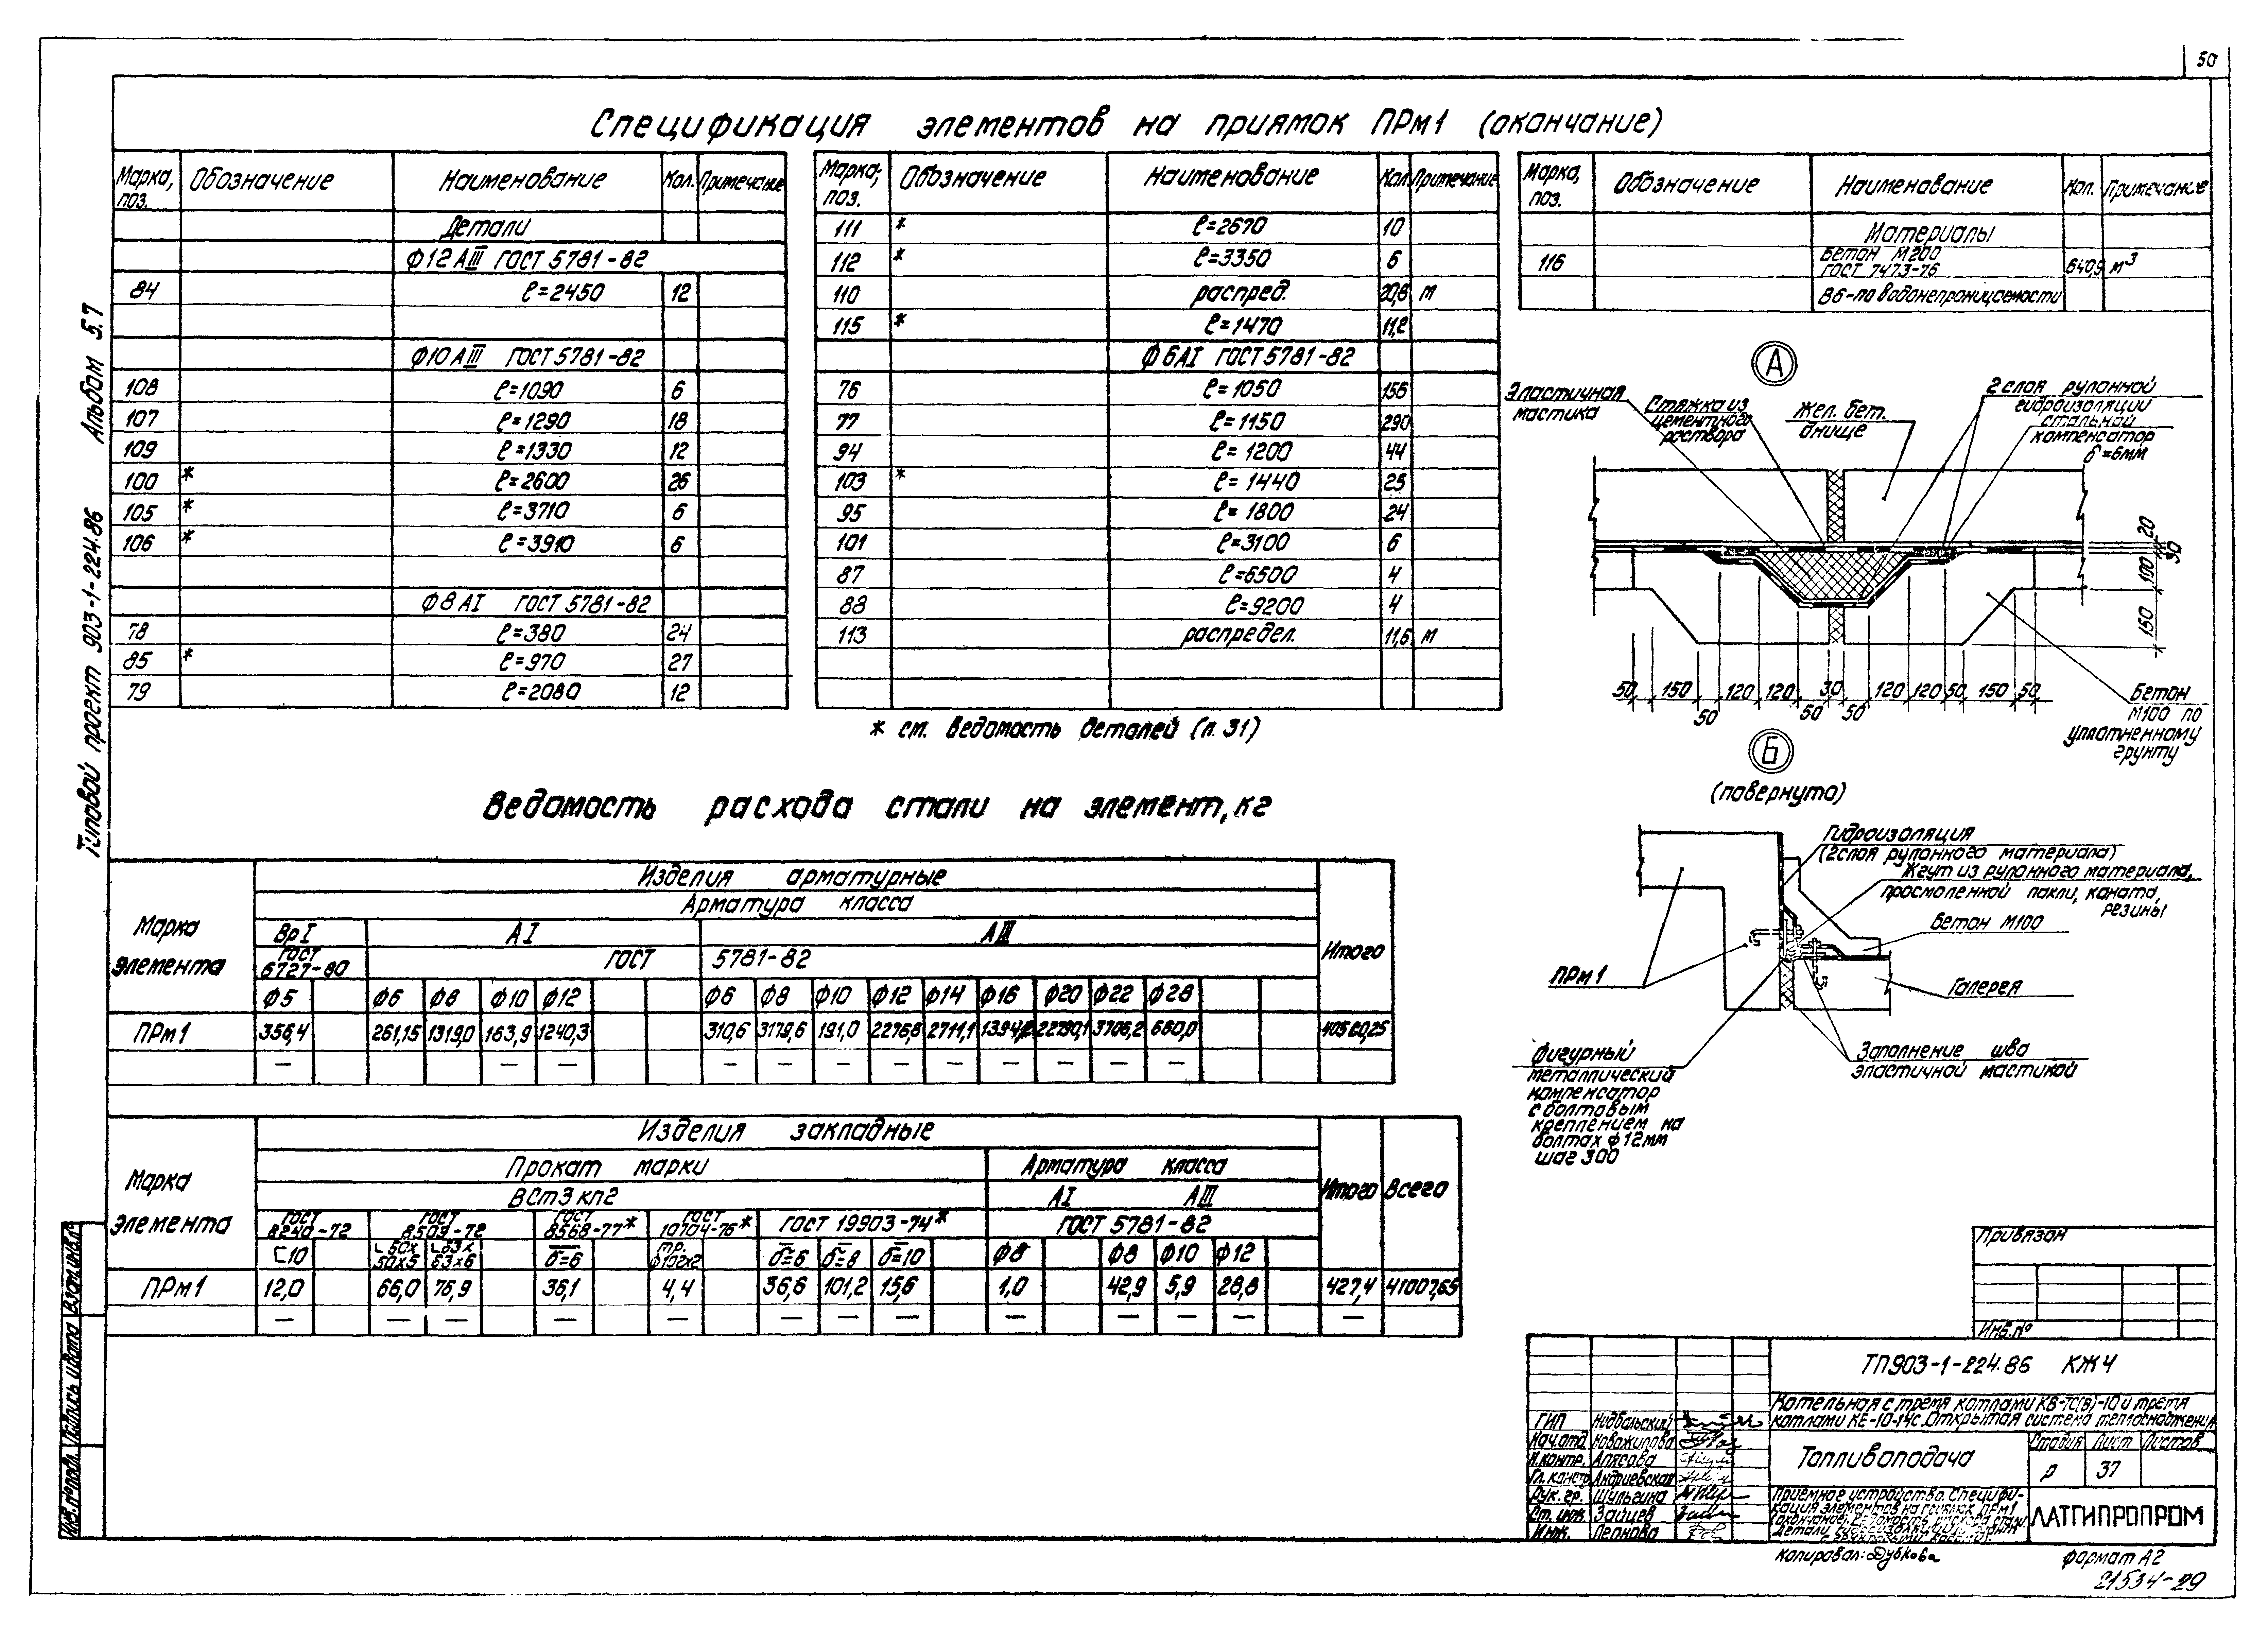 50
Спецификация элементов на приямок ПРм1 (окончание)
Марка, поз. Обозначение Наименование Кол. Примечание
Детали
Ф12АIII ГОСТ 5781-82
84 ℓ=2450 12
Ф10АIII ГОСТ 5781-82
108 ℓ=1090 6
107 ℓ=1290 18
109 ℓ=1330 12
100 * ℓ=2600 26
105 * ℓ=3710 6
106 * ℓ=3910 6
Ф8АI ГОСТ 5781-82
78 ℓ=380 24
85 * ℓ=970 27
79 ℓ=2080 12
Марка, поз. Обозначение Наименование Кол. Примечание
111 * ℓ=2670 10
112 * ℓ=3350 6
110 распред. 20,8 м
115 * ℓ=1470 11,2
Ф6АI ГОСТ 5781-82
76 ℓ=1050 156
77 ℓ=1150 290
94 ℓ=1200 44
103 * ℓ=1440 25
95 ℓ=1800 24
101 ℓ=3100 6
87 ℓ=6500 4
88 ℓ=9200 4
113 распредел. 11,6 м
* см. Ведомость деталей (л. 31)
Марка, поз. Обозначение Наименование Кол. Примечание
Материалы
116 Бетон М200
ГОСТ 7473-76 640,9 м³
В6-по водонепроницаемости
А
Эластичная
мастика
Стяжка из
цементного
раствора
Жел. бет.
днище
2 слоя рулонной
гидроизоляции
стальной
компенсатор
δ=6мм
20
30
100
150
50 150 50 120 120 50 30 50 120 120 50 150 50
Бетон
М100 по
уплотненному
грунту
Б
(повернуто)
Гидроизоляция
(2слоя рулонного материала)
Жгут из рулонного материала,
просмоленной пакли, каната,
резины
Бетон М100
ПРм1
Галерея
Фигурный
металлический
компенсатор
с болтовым
креплением на
болтах ф12мм
шаг 300
Заполнение шва
эластичной мастикой
Ведомость расхода стали на элемент, кг
Марка элемента
Изделия арматурные
Арматура класса
Итого
ВрI АI АIII
ГОСТ 6727-80 ГОСТ 5781-82
Ф5 Ф6 Ф8 Ф10 Ф12 Ф6 Ф8 Ф10 Ф12 Ф14 Ф16 Ф20 Ф22 Ф28
ПРм1 356,4 261,15 1319,0 163,9 1240,3 310,6 3179,6 191,0 2276,8 2711,1 1394,2 22790,1 3706,2 660,0 40560,25
— — — — — — — — — — — — —
Марка элемента
Изделия закладные
Прокат марки Арматура класса
Итого Всего
ВСт3кп2 АI АIII
ГОСТ 8240-72 ГОСТ 8509-72 ГОСТ 8568-77* ГОСТ 10704-76* ГОСТ 19903-74* ГОСТ 5781-82
⊏10 ∟50х50х5 ∟63х63х6 δ=6 тр. Ф102х2 δ=6 δ=8 δ=10 Ф8 Ф8 Ф10 Ф12
ПРм1 12,0 66,0 76,9 36,1 4,4 36,6 101,2 15,6 1,0 42,9 5,9 28,8 427,4 41007,65
— — — — — — — — — — — — —
Альбом 5.7
Типовой проект 903-1-224.86
Взам. инв.№
Подпись и дата
Инв.№ подл.
Привязан
Инв.№
ТП903-1-224.86 КЖ4
Котельная с тремя котлами КВ-ТС(В)-10 и тремя
котлами КЕ-10-14с. Открытая система теплоснабжения
ГИП Нидбальский
Нач.отд. Новожилова
Н.контр. Алясова
Гл. констр. Андриевская
Рук. гр. Шульгина
Ст. инж. Зайцев
Инж. Пернова
Топливоподача
Стадия Лист Листов
Р 37
Приемное устройство. Специфи-
кация элементов на приямок ПРм1
(окончание). Ведомость расхода стали
ЛАТГИПРОПРОМ
Копировал: Дубкова
Формат А2
21534-29